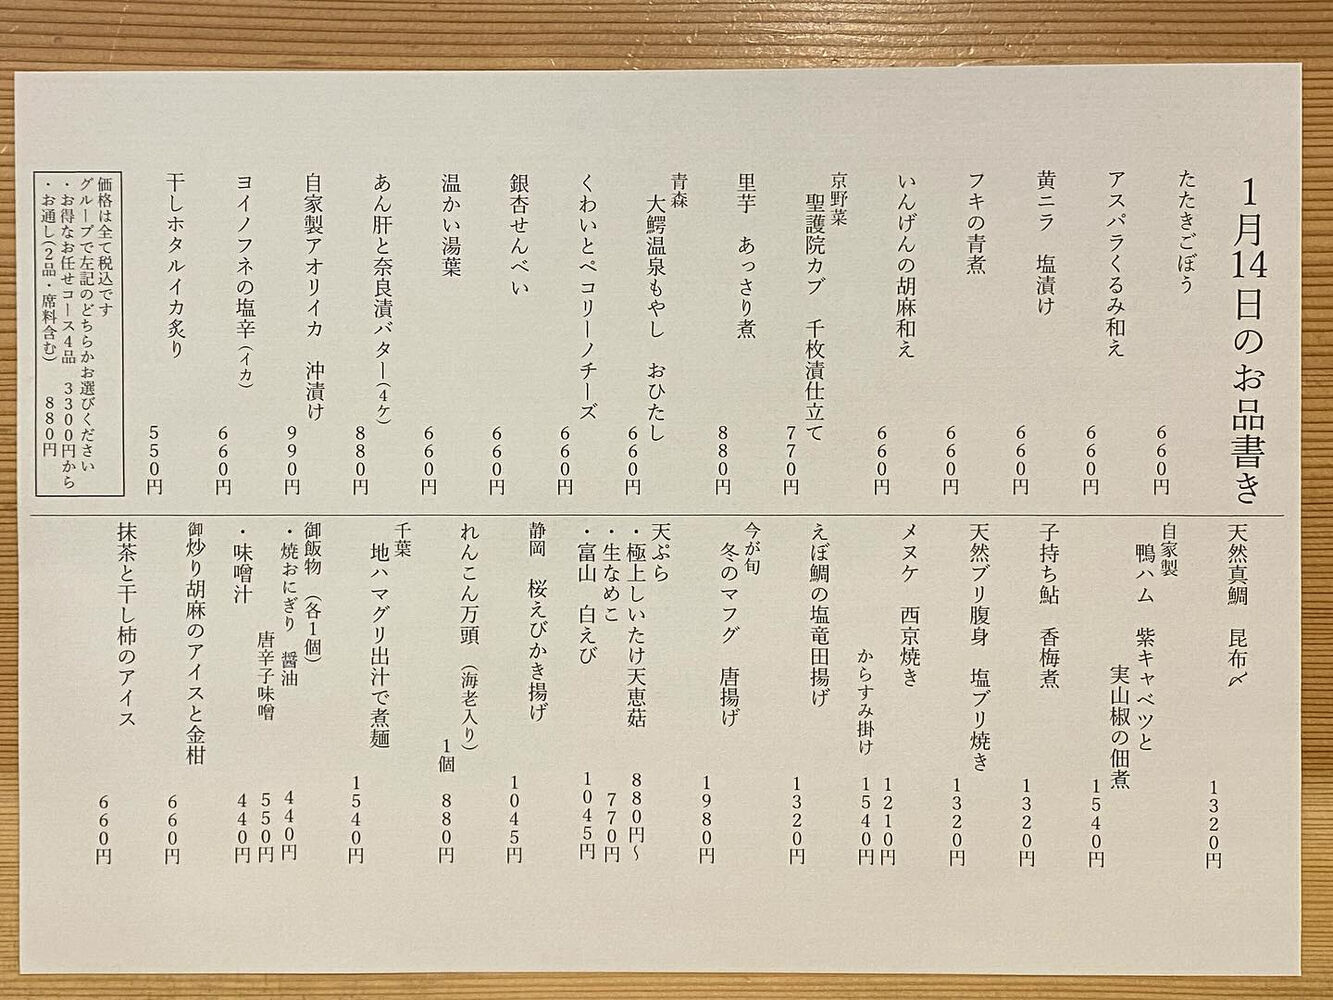 1月14日のお品書き
たたきごぼう
660円
アスパラくるみ和え
660円
黄ニラ 塩漬け
660円
フキの青煮
660円
いんげんの胡麻和え
660円
京野菜
聖護院カブ 千枚漬仕立て
770円
里芋 あっさり煮
880円
青森
大鰐温泉もやし おひたし
660円
くわいとペコリーノチーズ
660円
銀杏せんべい
660円
温かい湯葉
660円
あん肝と奈良漬バター(4ケ)
880円
自家製アオリイカ 沖漬け
990円
ヨイノフネの塩辛(イカ)
660円
干しホタルイカ炙り
550円
価格は全て税込です
グループで左記のどちらかお選びください
・お得なお任せコース4品 3300円から
・お通し(2品・席料含む) 880円
天然真鯛 昆布〆
1320円
自家製
鴨ハム 紫キャベツと
実山椒の佃煮
1540円
子持ち鮎 香梅煮
1320円
天然ブリ腹身 塩ブリ焼き
1320円
メヌケ 西京焼き
1210円
からすみ掛け
1540円
えぼ鯛の塩竜田揚げ
1320円
今が旬
冬のマフグ 唐揚げ
1980円
天ぷら
・極上しいたけ天恵菇 880円〜
・生なめこ 770円
・富山 白えび 1045円
静岡 桜えびかき揚げ
1045円
れんこん万頭 (海老入り)
1個 880円
千葉
地ハマグリ出汁で煮麺
1540円
御飯物 (各1個)
・焼おにぎり 醤油 440円
唐辛子味噌 550円
・味噌汁 440円
御炒り胡麻のアイスと金柑
660円
抹茶と干し柿のアイス
660円